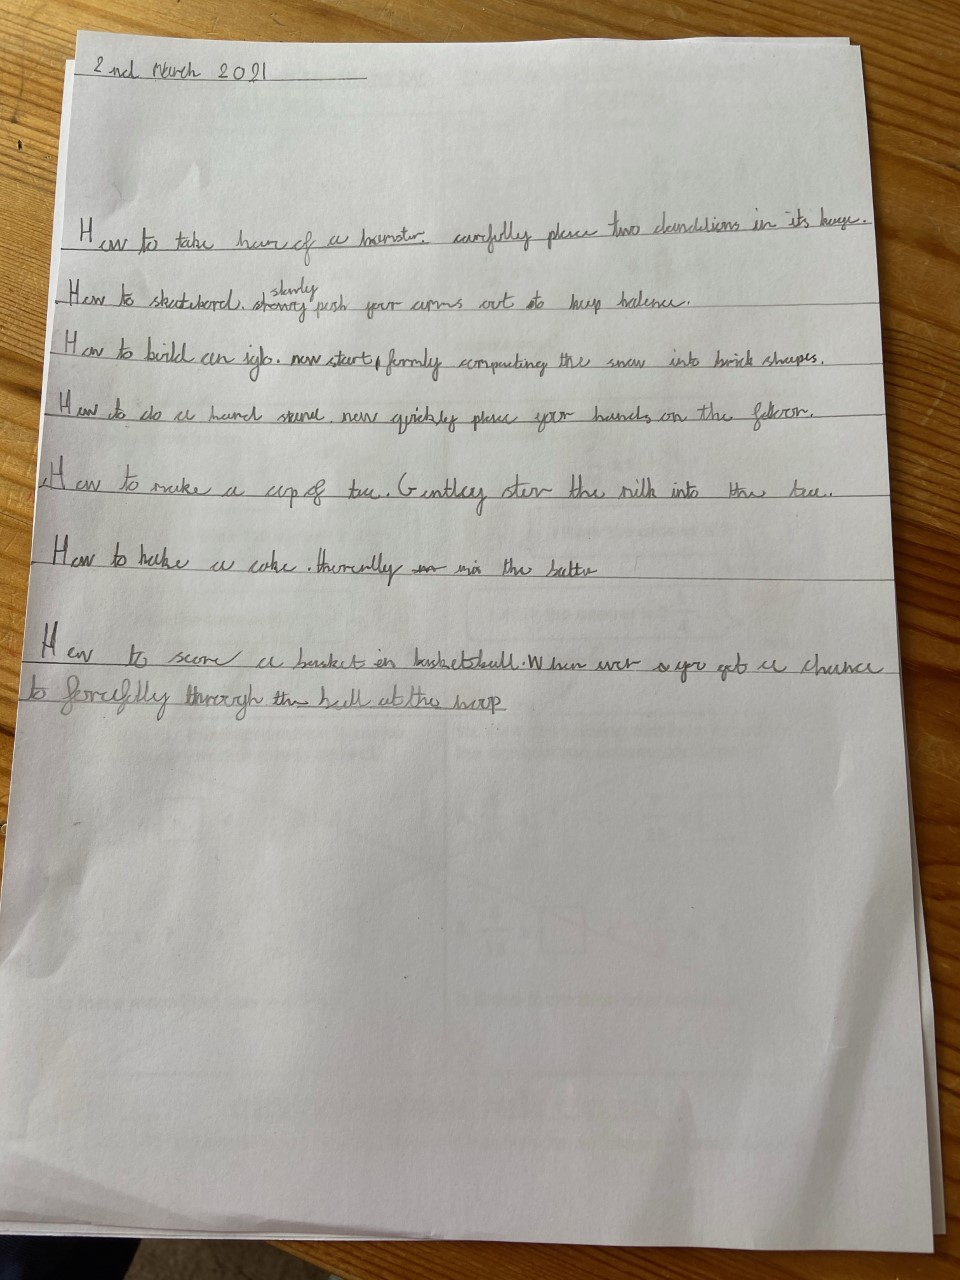 2nd March 2021
How to take of a hamster. carfully place two dandelions in its
How to skatebord. slowly push your arms out to keep balence.
How to build an iglo. now start, formly compacting the snow into brick shapes.
How to do a hand stand. now quickly place your hands on the
How to make a cup of tea. Gentley ster the milk into the tea.
How to bake a cake. therorlly mix the batte
How to score a basket in basketball. When ever you get a chance
to forcefully through the ball at the hoop